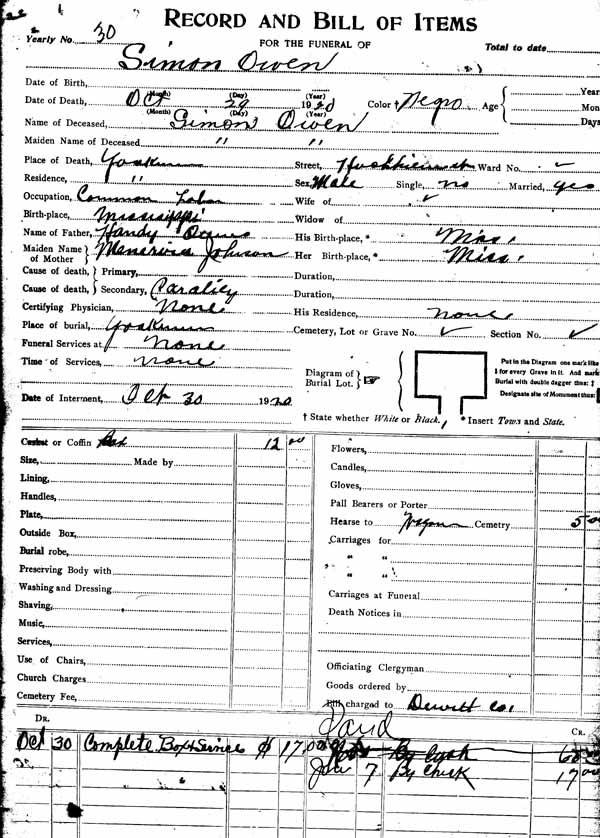 RECORD AND BILL OF ITEMS
Yearly No. 30
FOR THE FUNERAL OF
Total to date
Simon Owen
Date of Birth,
Year
Date of Death, Oct (Month) 29 (Day) 1920 (Year) Color † Negro Age Mon
(Month) (Day) (Year) Days
Name of Deceased, Simon Owen
Maiden Name of Deceased " "
Place of Death, Yoakum Street, Ward No. ✓
Residence, " Sex, Male Single, no Married, yes
Occupation, Common Labor Wife of ✓
Birth-place, Mississippi Widow of
Name of Father, Handy Owens His Birth-place, * Miss.
Maiden Name of Mother Menervia Johnson Her Birth-place, * Miss.
Cause of death, Primary, Duration,
Cause of death, Secondary, Duration,
Certifying Physician, None His Residence, none
Place of burial, Yoakum Cemetery, Lot or Grave No. ✓ Section No. ✓
Funeral Services at None
Time of Services, none
Diagram of Burial Lot.
Put in the Diagram one mark like
‡ for every Grave in it. And mark
Burial with double dagger thus: ‡
Designate site of Monument thus:
Date of Interment, Oct 30 1920
† State whether White or Black. * Insert Town and State.
Casket or Coffin Box 12 00 Flowers,
Size, Made by Candles,
Lining, Gloves,
Handles, Pall Bearers or Porter
Plate, Hearse to Wagon Cemetry 5 00
Outside Box, Carriages for
Burial robe, " "
Preserving Body with " "
Washing and Dressing Carriages at Funeral
Shaving, Death Notices in
Music,
Services,
Use of Chairs, Officiating Clergyman
Church Charges Goods ordered by
Cemetery Fee, Bill charged to Dewitt Co.
DR. Paid CR.
Oct 30 Complete Box & Service $ 17.00 By Cash
7 By Check 17 00